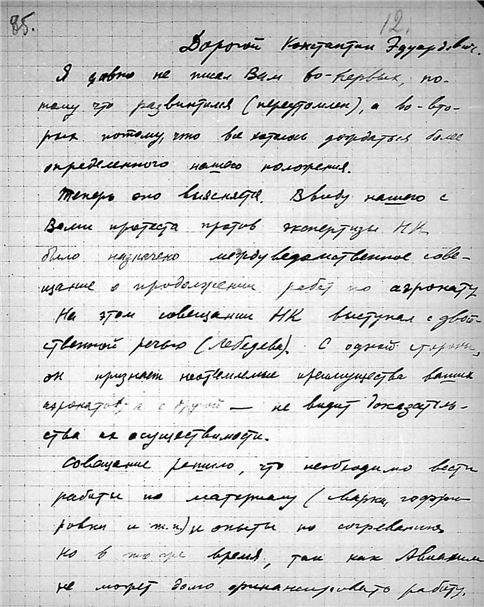 85.
12.
Дорогой Константин Эдуардович.
Я давно не писал Вам во-первых, по-
тому что развинтился (переутомлен), а во-вто-
рых потому, что все хотелось дождаться более
определенного нашего положения.
Теперь оно выясняется. В виду нашего с
Вами протеста против экспертизы НК
было назначено междуведомственное сове-
щание о продолжении работ по аэронату
На этом совещании НК выступал с двой-
ственной речью (Лебедева). С одной стороны,
он признает неотемлемые преимущества ваших
аэронатов, а с другой — не видит доказатель-
ства их осуществимости.
Совещание решило, что необходимо вести
работы по материалу (марки, гофри-
ровки и т.п.) и опыты по согреванию
но в то же время, так как Авиахим
не может долго финансировать работу,